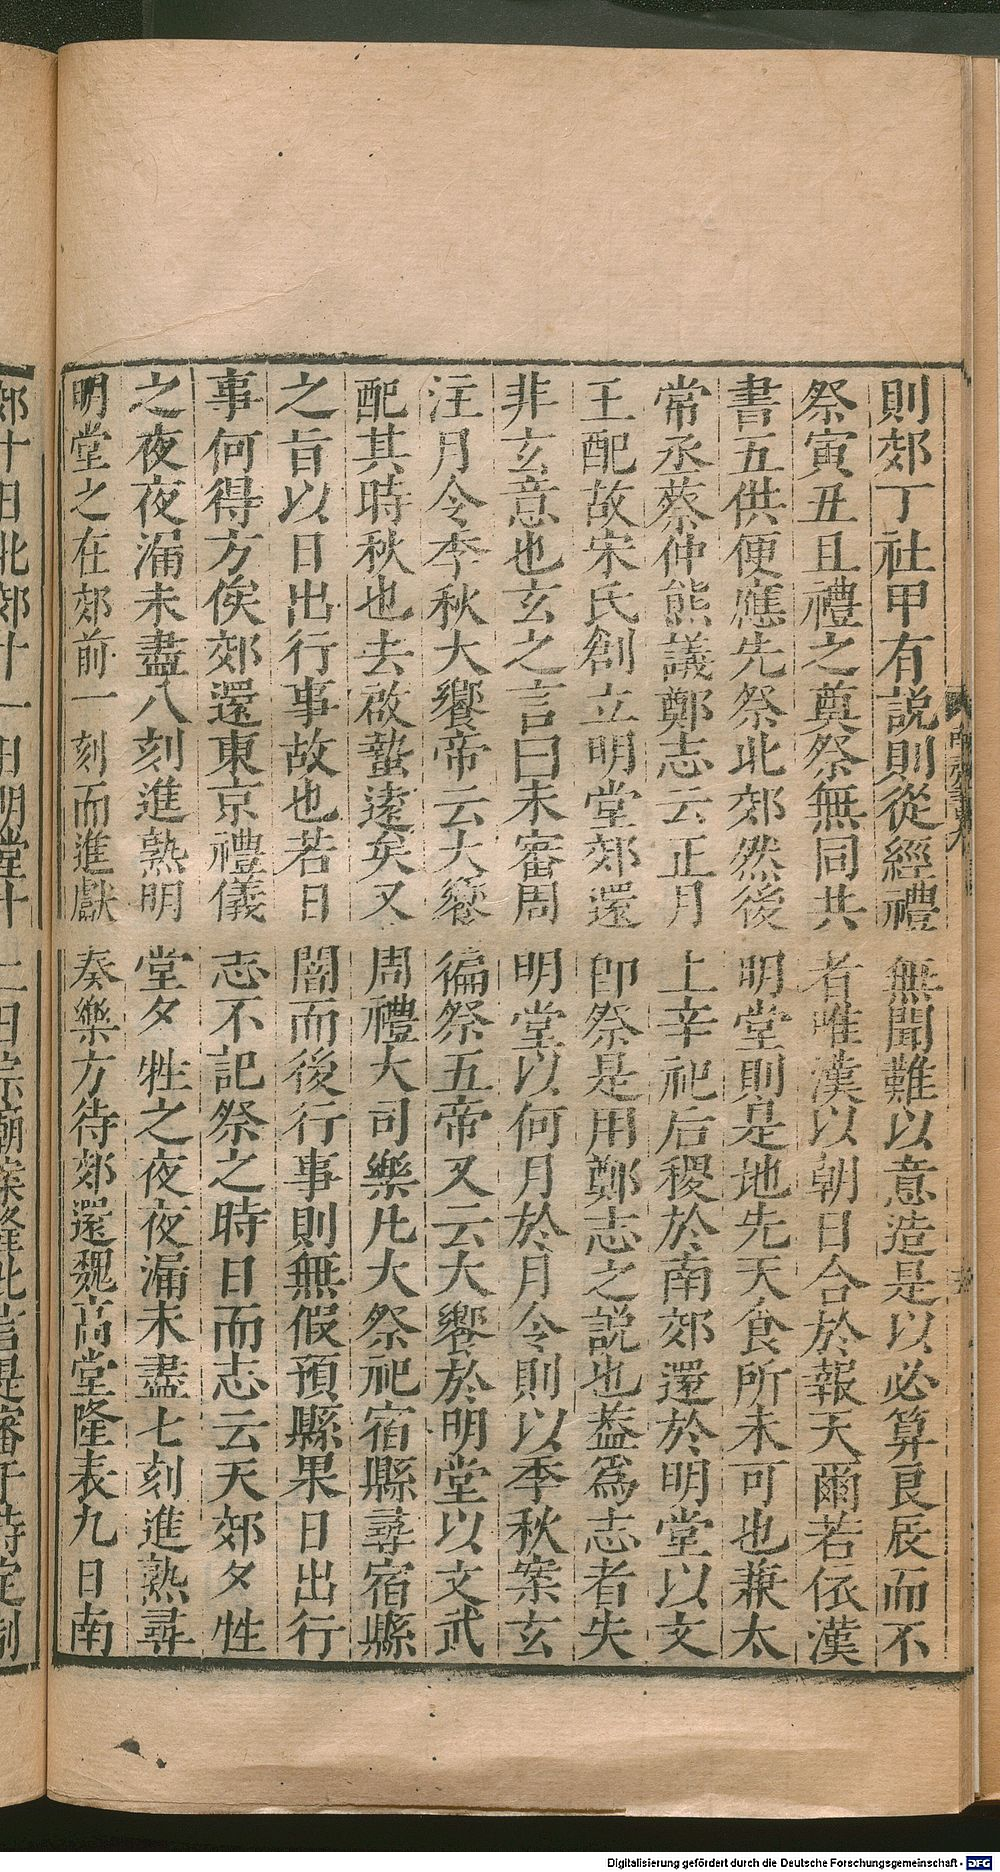 則郊丁社甲有說則從經禮無聞難以意造是以必算良辰而不
祭寅丑且禮之奠祭無同共者唯漢以朝日合於報天爾若依漢
書五供便應先祭北郊然後明堂則是地先天食所未可也兼太
常丞蔡仲熊議鄭志云正月上辛祀后稷於南郊還於明堂以文
王配故宋氏創立明堂郊還卽祭是用鄭志之說也蓋爲志者失
非玄意也玄之言曰未審周明堂以何月於月令則以季秋案玄
注月令季秋大饗帝云大饗徧祭五帝又云大饗於明堂以文武
配其時秋也去啟蟄遠矣又周禮大司樂凡大祭祀宿縣尋宿縣
之旨以日出行事故也若日闇而後行事則無假預縣果日出行
事何得方俟郊還東京禮儀志不記祭之時日而志云天郊夕牲
之夜夜漏未盡八刻進熟明堂夕牲之夜夜漏未盡七刻進熟尋
明堂之在郊前一刻而進獻奏樂方待郊還魏高堂隆表九日南
郊十日北郊十一日明堂十二日宗廟案隆此言是審于時定制
Digitalisierung gefördert durch die Deutsche Forschungsgemeinschaft - DFG